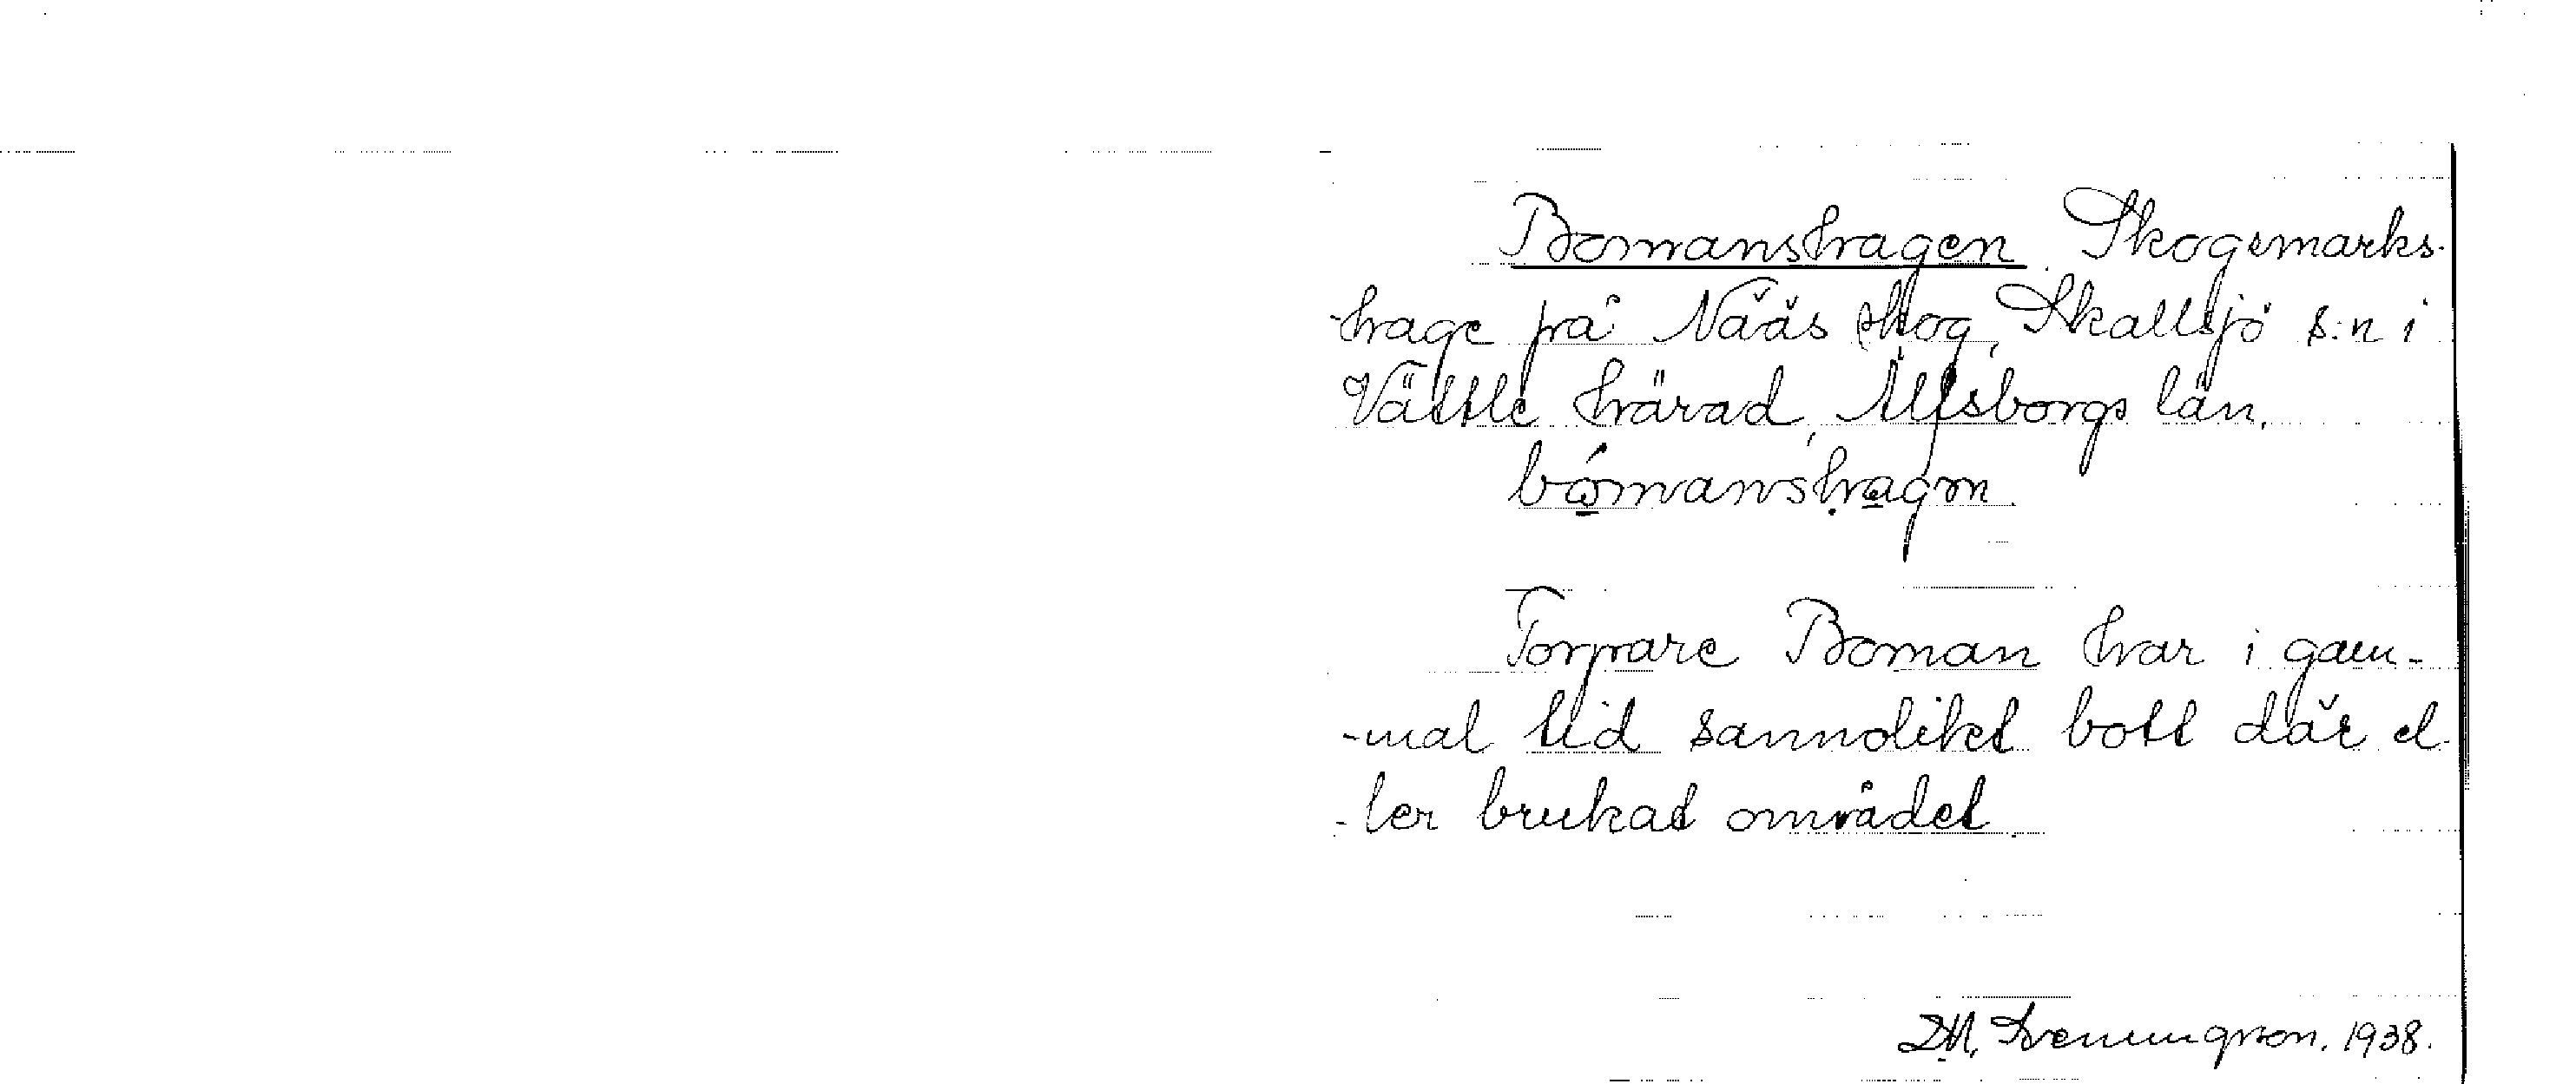 Bomanshagen. Skogsmarks-
-hage på Nääs skog, Skallsjö s:n i
Vättle härad, Älfsborgs län.
bómanshagen.
Torpare Boman har i gam-
-mal tid sannolikt bott där el-
-ler brukat området.
1938.